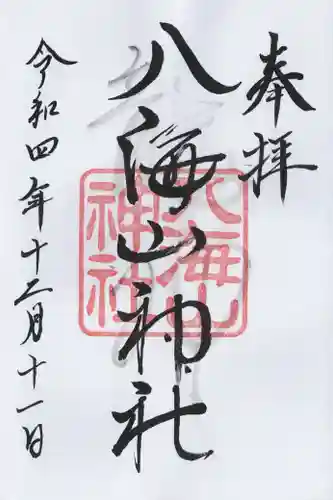 奉拝
八海山神社
八海山
神社
令和四年十二月十一日